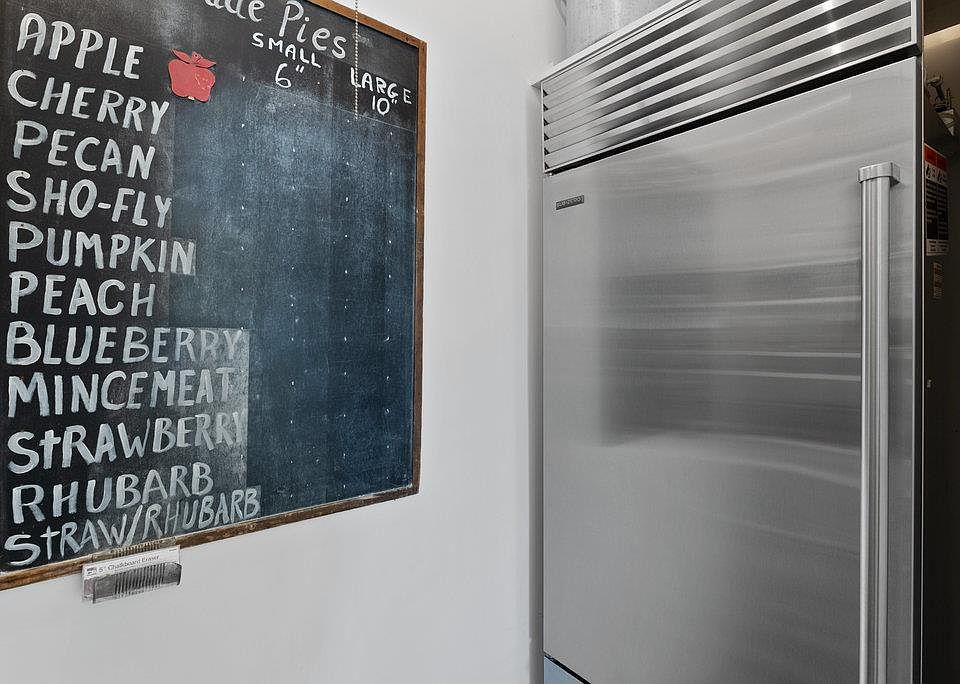 ade Pies
SMALL
6"
LARGE
10"
APPLE
CHERRY
PECAN
SHO-FLY
PUMPKIN
PEACH
BLUEBERRY
MINCEMEAT
STRAWBERRY
RHUBARB
STRAW/RHUBARB
5" Chalkboard Eraser
SUB-ZERO